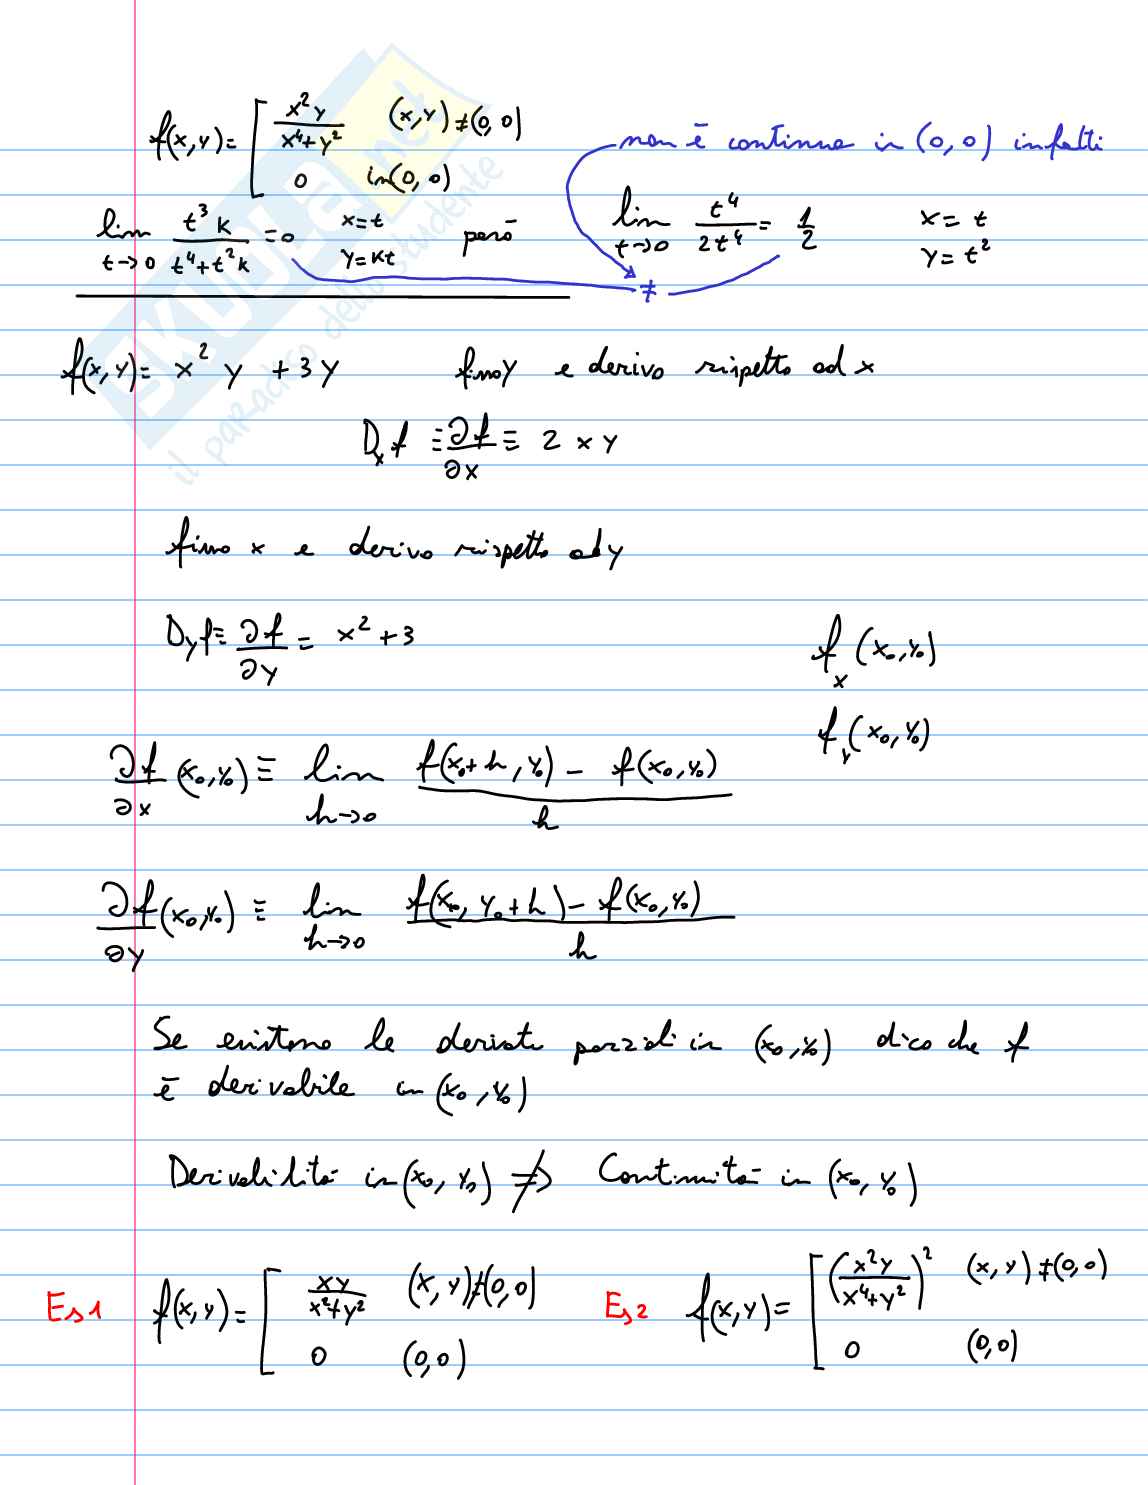 f(x,y)= [ x²y / x⁴+y²   (x,y)≠(0,0)
0   in(0,0)
non è continua in (0,0) infatti
lim t→0 t³k / t⁴+t²k =0   x=t y=kt   però   lim t→0 t⁴ / 2t⁴ = 1/2   x=t y=t²
≠
f(x,y)= x²y+3y   fisso y e derivo rispetto ad x
Dₓf ≡ ∂f/∂x ≡ 2xy
fisso x e derivo rispetto ad y
D_y f ≡ ∂f/∂y = x²+3
f_x (x₀,y₀)
f_y (x₀,y₀)
∂f/∂x (x₀,y₀) ≡ lim h→0 f(x₀+h,y₀) − f(x₀,y₀) / h
∂f/∂y (x₀,y₀) ≡ lim h→0 f(x₀,y₀+h) − f(x₀,y₀) / h
Se esistono le derivate parziali in (x₀,y₀) dico che f
è derivabile in (x₀,y₀)
Derivabilità in (x₀,y₀) ⇏ Continuità in (x₀,y₀)
Es1 f(x,y)= [ xy / x²+y²   (x,y)≠(0,0)
0   (0,0)
Es2 f(x,y)= [ (x²y / x⁴+y²)²   (x,y)≠(0,0)
0   (0,0)
SKUOLA.net
il paradiso dello studente